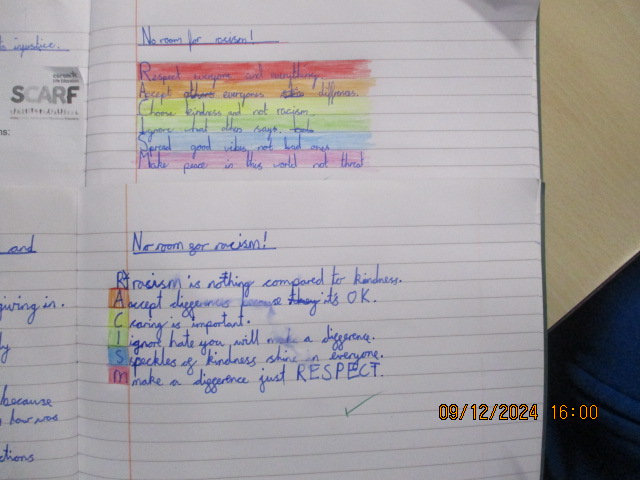 to injustice.
coram
Life Education
SCARF
ns:
No room for racism!
Respect everyone and everything
Accept everyones differences.
Choose kindness and not racism
Ignore what others says.
Spread good vibes not bad ones
Make peace in this world not threat
and
giving in.
ly
because
how was
ctions
No room for racism!
R racism is nothing compared to kindness.
A accept differences because they its OK.
C caring is important.
I ignore hate you will make a difference.
S speckles of kindness shine in everyone.
m make a difference just RESPECT.
09/12/2024 16:00